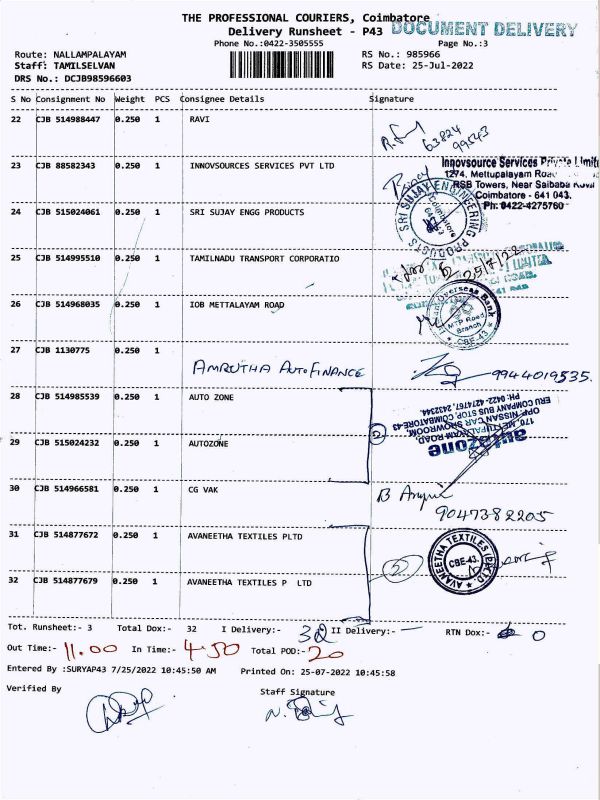 THE PROFESSIONAL COURIERS, Coimbatore
Delivery Runsheet - P43
DOCUMENT DELIVERY
Phone No.:0422-3505555
Page No.:3
Route: NALLAMPALAYAM
RS No.: 985966
Staff: TAMILSELVAN
RS Date: 25-Jul-2022
DRS No.: DCJB98596603
S No Consignment No Weight PCS Consignee Details Signature
22 CJB 514988447 0.250 1 RAVI
63824
99543
23 CJB 88582343 0.250 1 INNOVSOURCES SERVICES PVT LTD
Innovsource Services Private Limit
1274, Mettupalayam Road
RSB Towers, Near Saibaba
Coimbatore - 641 043.
Ph: 0422-4275760
24 CJB 515024061 0.250 1 SRI SUJAY ENGG PRODUCTS
SRI SUJAY ENGINEERING PRODUCTS
Coimbatore
25 CJB 514995510 0.250 1 TAMILNADU TRANSPORT CORPORATIO
25/7/22
26 CJB 514968035 0.250 1 IOB METTALAYAM ROAD
Overseas Bank
MTP Road
Branch
CBE-43
27 CJB 1130775 0.250 1
AMRUTHA AUTOFINANCE
9944019535.
28 CJB 514985539 0.250 1 AUTO ZONE
29 CJB 515024232 0.250 1 AUTOZONE
2
autozone
170, METTUPALAYAM ROAD,
OPP. NISSAN CAR SHOWROOM,
ERU COMPANY BUS STOP, COIMBATORE-43
PH: 0422-4214767, 2432344.
30 CJB 514966581 0.250 1 CG VAK
9047382205
31 CJB 514877672 0.250 1 AVANEETHA TEXTILES PLTD
32 CJB 514877679 0.250 1 AVANEETHA TEXTILES P LTD
2
AVANEETHA TEXTILES (P) LTD
CBE-43.
Tot. Runsheet:- 3 Total Dox:- 32 I Delivery:- 32 II Delivery:- — RTN Dox:- 0
Out Time:- 11.00 In Time:- 4.50 Total POD:- 20
Entered By :SURYAP43 7/25/2022 10:45:50 AM Printed On: 25-07-2022 10:45:58
Verified By
Staff Signature